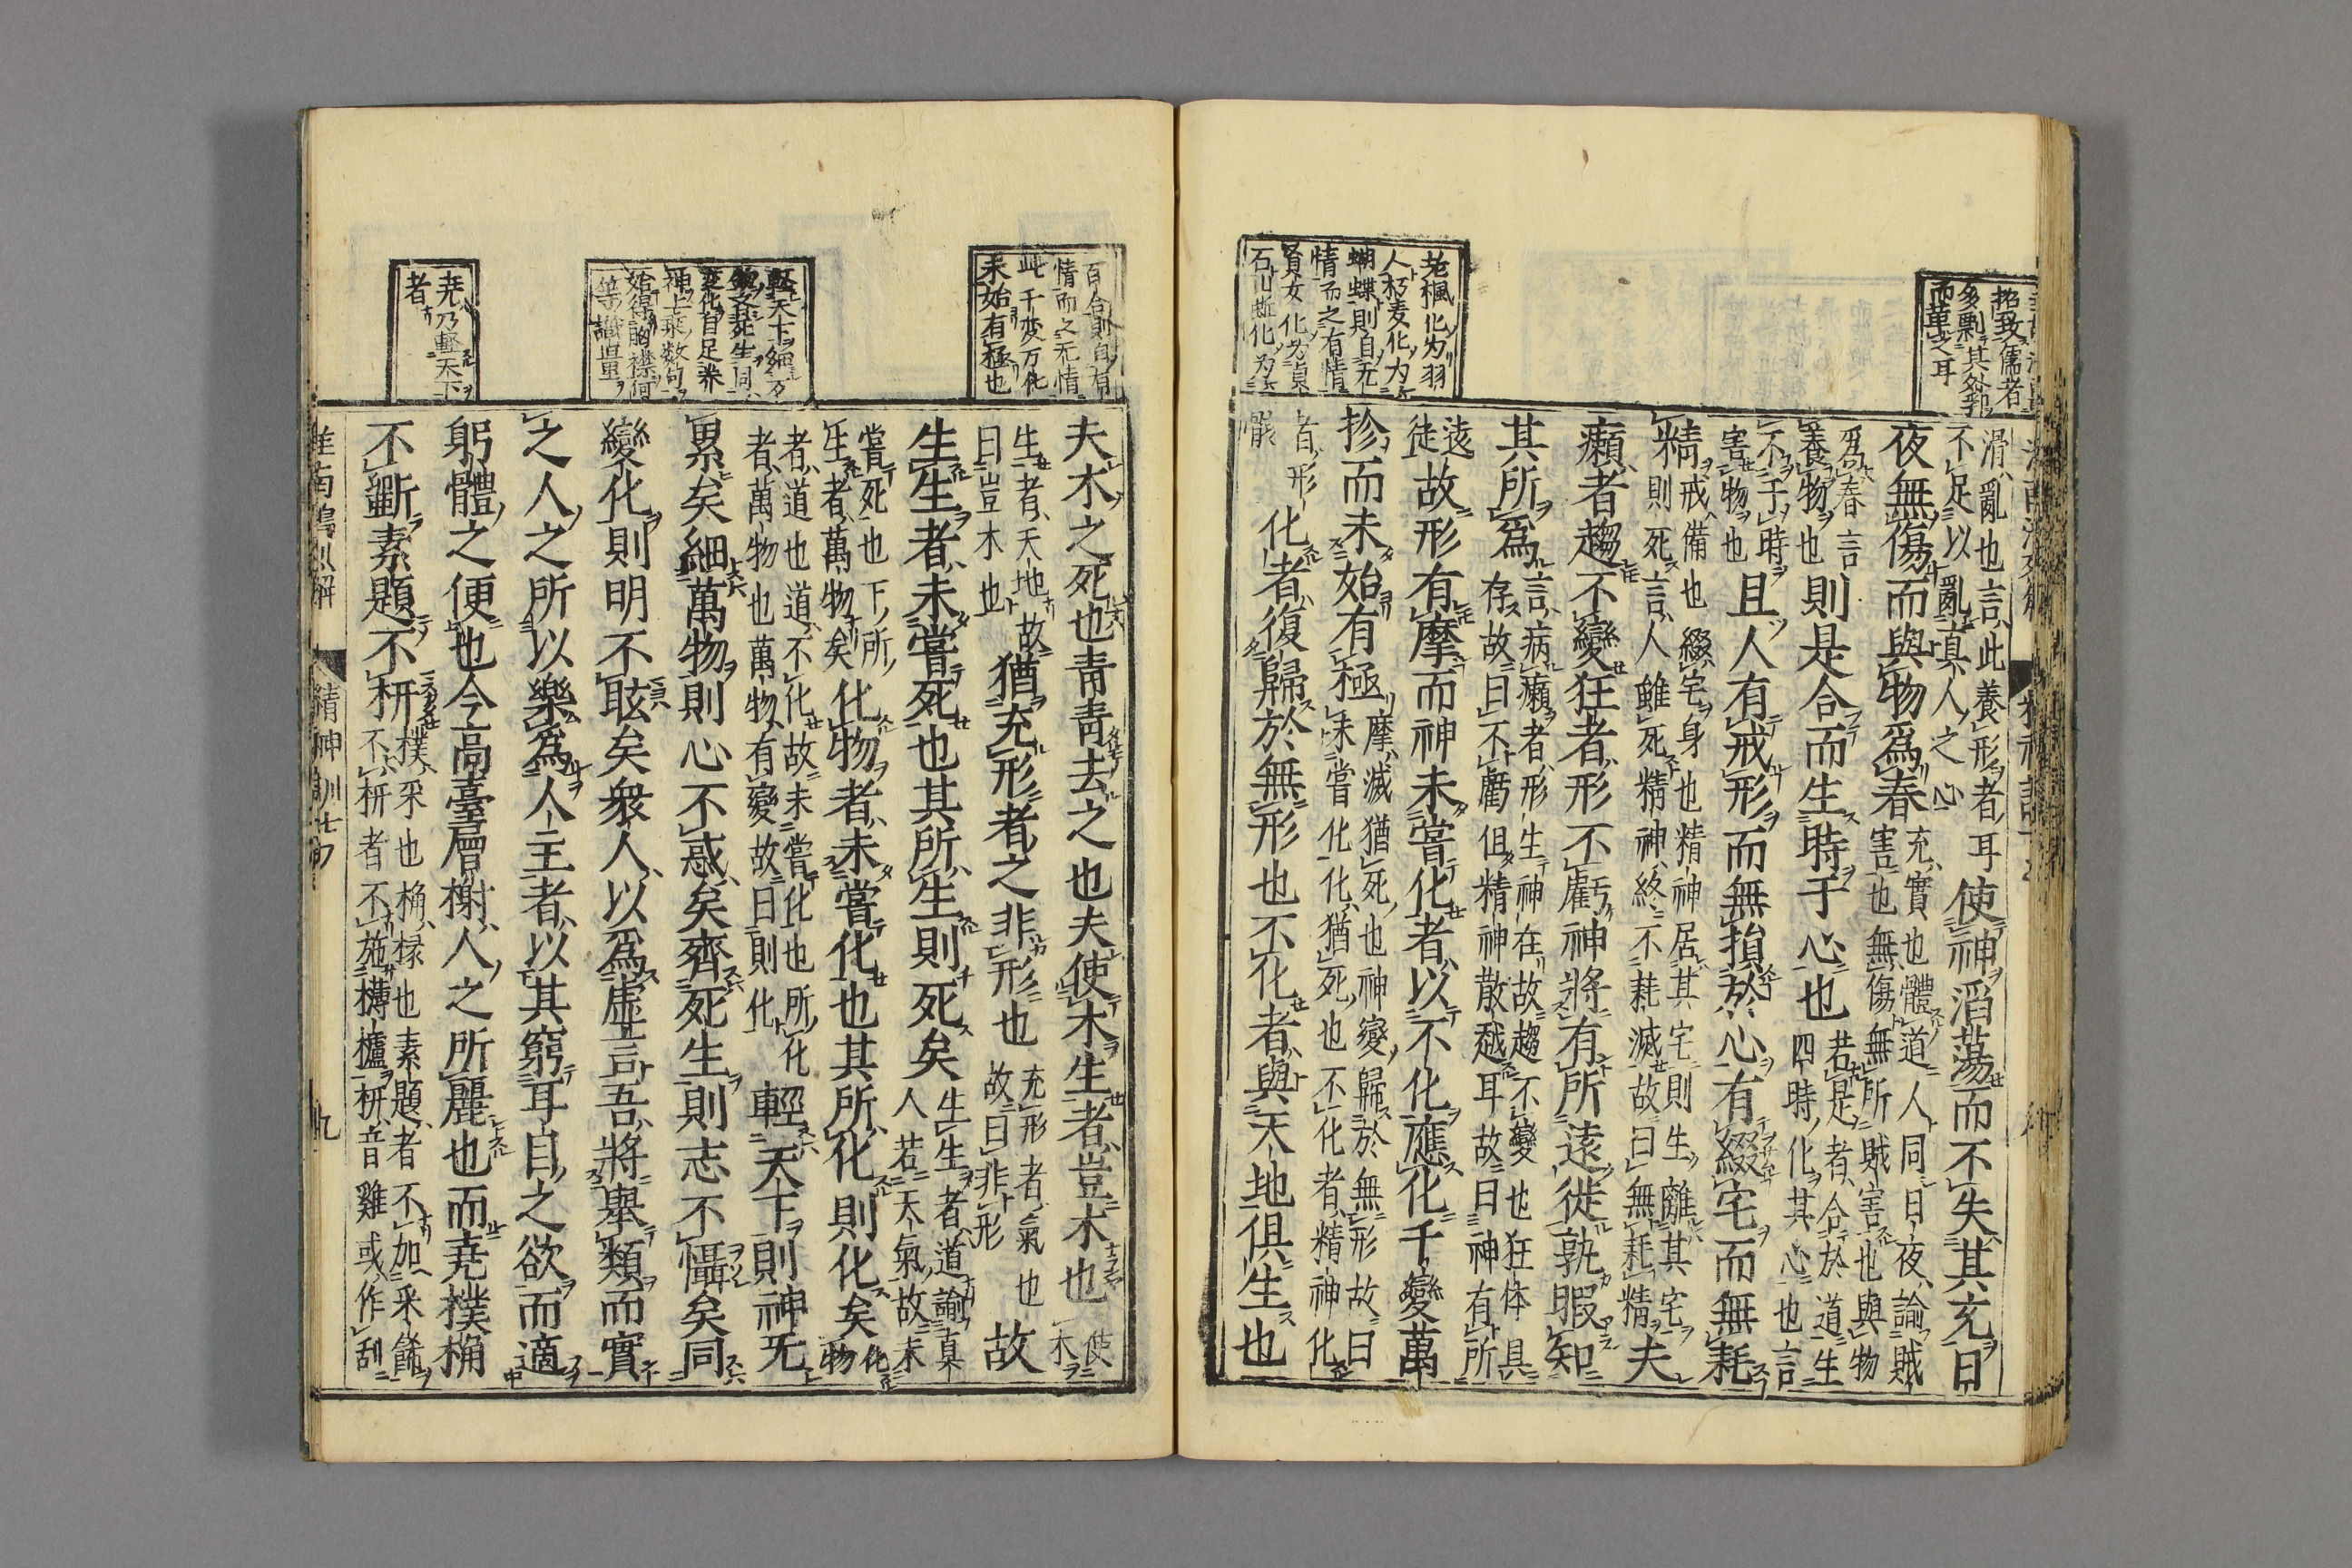 招致儒者
多剽其餘
而葺之耳
滑亂也言此養形者耳
不足以亂真人之心
使神滔蕩而不失其充日
夜無傷而與物爲春
充實也體道人同日夜諭賊
害也無傷無所賊害也與物
爲春言
養物也
則是合而生時于心也
若是者合於道生
四時化其心也言
不干時
害物也
且人有戒形而無損於心有綴宅而無耗
精
戒備也綴宅身也精神居其宅則生離其宅
則死言人雖死精神終不耗減故曰無耗精
夫
癩者趨不變狂者形不虧神將有所遠徙孰暇知
其所爲
言病癩者形生神在故趨不變也狂体具
存故曰不虧但精神散越耳故曰神有所
遠
徙
故形有摩而神未嘗化者以不化應化千變萬
抮而未始有極
摩滅猶死也神變歸於無形故曰
未嘗化化猶死也不化者精神化
者形
骸
化者復歸於無形也不化者與天地俱生也
老楓化为羽
人朽麦化为
蝴蝶則自无
情而之有情
賢女化为貞
石山蚯化为
百合則自有
情而之无情
此千变万化
未始有極也
夫木之死也青青去之也夫使木生者豈木也
使
木
生者天地故
曰豈木也
猶充形者之非形也
充形者氣也
故曰非形
故
生生者未嘗死也其所生則死矣
生生者道諭真
人若天氣故未
嘗死也下所
生者萬物矣
化物者未嘗化也其所化則化矣
化
物
者道也道不化故未嘗化也所化
者萬物也萬物有變故曰則化
輕天下則神无
累矣細萬物則心不惑矣齊死生則志不懾矣同
變化則明不眩矣衆人以爲虛言吾將舉類而實
之人之所以樂爲人主者以其窮耳目之欲而適
躬體之便也今高臺層榭人之所麗也而堯樸桷
不斲素題不枅
樸采也桷椽也素題者不加采餙
不枅者不施欂櫨枅音雞或作刮
輕天下細万
物齊死生同
变化自足养
神上乗数句
始得胸襟何
等識量
堯乃輕天下
者
淮南鴻烈解
精神訓七
九